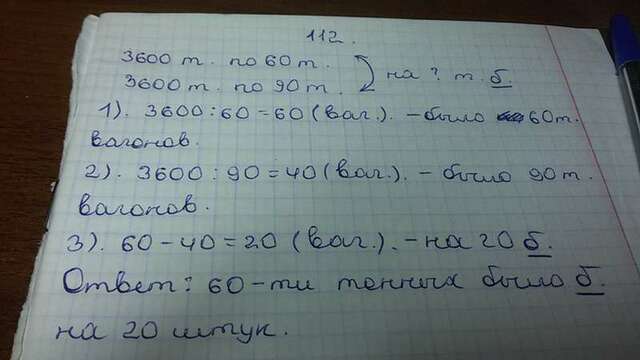 112.
3600 т. по 60 т.
3600 т. по 90 т.
на ? т. б.
1). 3600 : 60 = 60 (ваг.). – было 60 т.
вагонов.
2). 3600 : 90 = 40 (ваг.). – было 90 т.
вагонов.
3). 60 – 40 = 20 (ваг.). – на 20 б.
Ответ: 60-ти тенных было б.
на 20 штук.